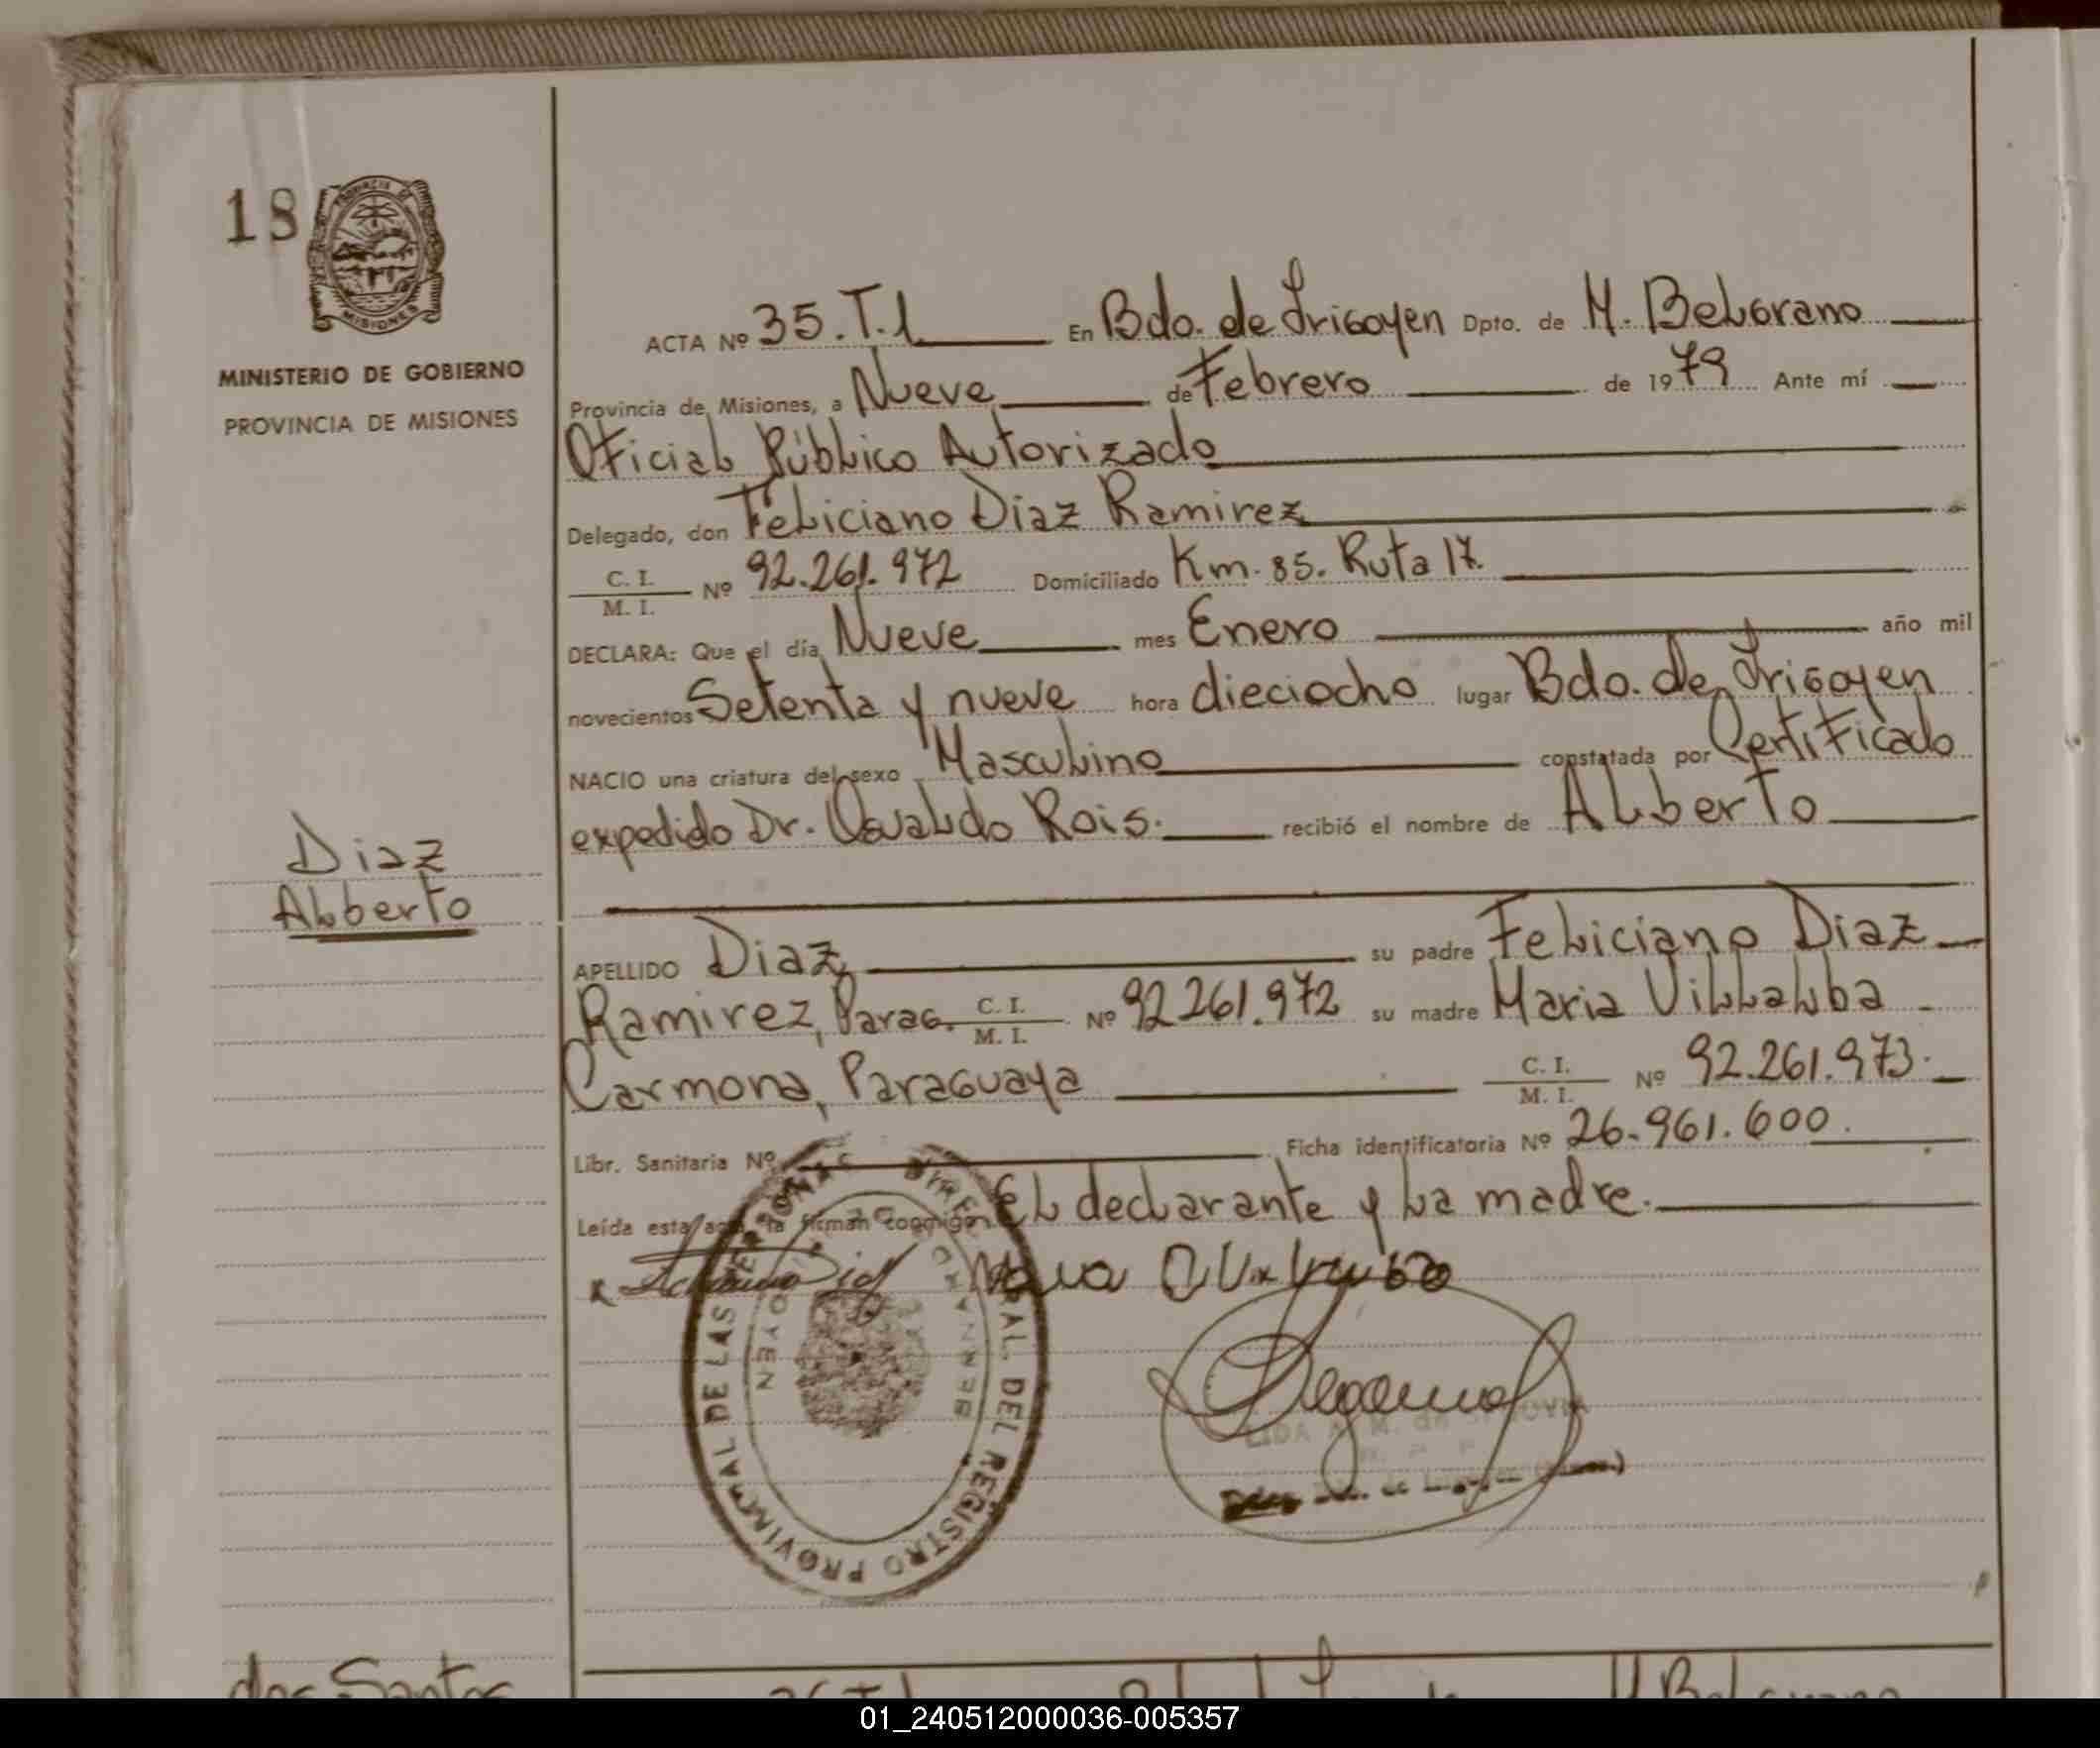 18
MINISTERIO DE GOBIERNO
PROVINCIA DE MISIONES
ACTA Nº 35.T.1 En Bdo. de Irigoyen Dpto. de M. Belgrano
Provincia de Misiones, a Nueve de Febrero de 1979 Ante mí
Oficial Público Autorizado
Delegado, don Feliciano Diaz Ramirez
C. I. / M. I. Nº 92.261.972 Domiciliado Km. 85. Ruta 17.
DECLARA: Que el día Nueve mes Enero año mil
novecientos Setenta y nueve hora dieciocho lugar Bdo. de Irigoyen
NACIO una criatura del sexo Masculino constatada por Certificado
expedido Dr. Osvaldo Rois. recibió el nombre de Alberto
Diaz
Alberto
APELLIDO Diaz su padre Feliciano Diaz
Ramirez, Parag. C. I. / M. I. Nº 92261.972 su madre Maria Villalba
Carmona, Paraguaya C. I. / M. I. Nº 92.261.973.
Libr. Sanitaria Nº Ficha identificatoria Nº 26.961.600.
Leída esta acta la firman conmigo El declarante y la madre.
REGISTRO PROVINCIAL DE LAS PERSONAS
dos Santos
01_240512000036-005357